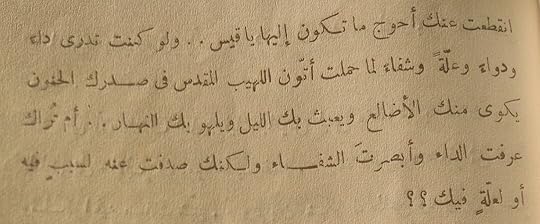 انقطعت عنك أحوج ما تكون إليها يا قيس . . ولو كنت تدرى داء
ودواء وعلّةً وشفاءً لما حملت أتّون اللهيب المقدس فى صدرك الحنون
يكوى منك الأضالع ويعبث بك الليل ويلهو بك النهار . . أم تُراك
عرفت الداء وأبصرتَ الشفاء ولكنك صدفت عنه لسببٍ فيه
أو لعلّةٍ فيك ؟ ؟